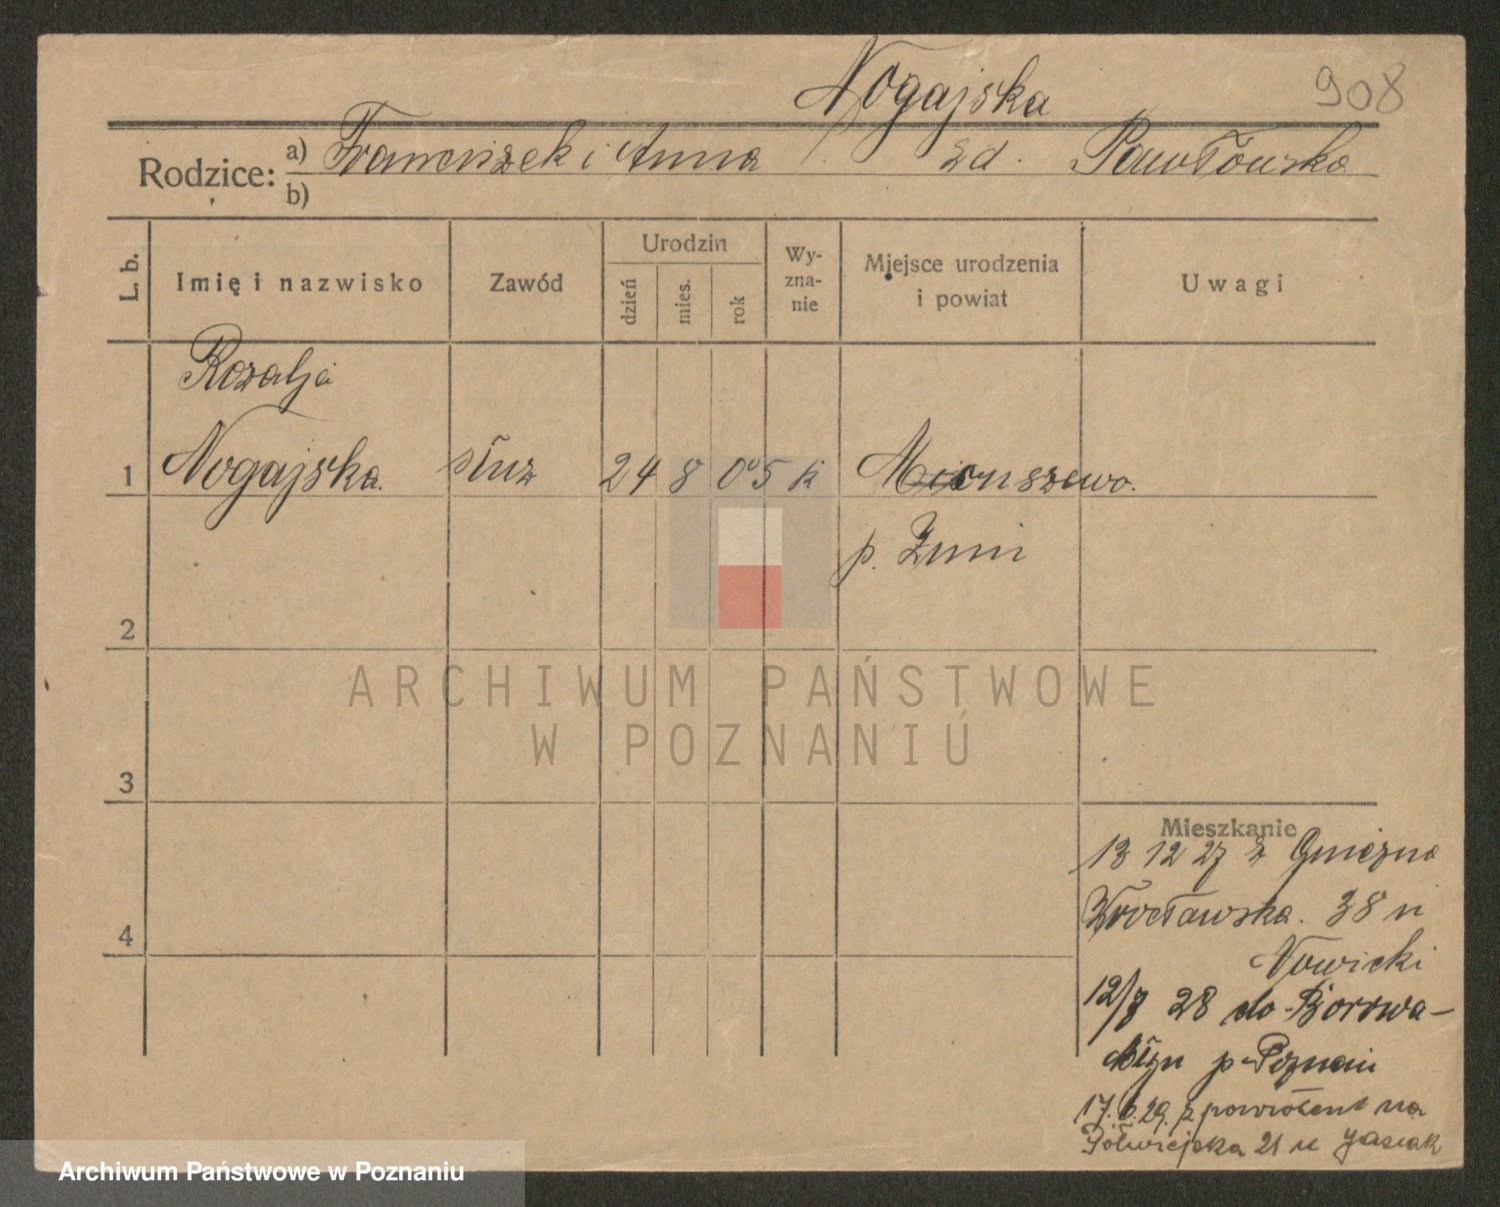 Nogajska 908
Rodzice: a) Franciszek i Anna zd. Pawłowska
b)
L. b. Imię i nazwisko Zawód Urodzin dzień mies. rok Wy-zna-nie Miejsce urodzenia i powiat Uwagi
Rozalja
1 Nogajska. służ 24 8 05 k
p. Żnin
2
ARCHIWUM PAŃSTWOWE
W POZNANIU
3
Mieszkanie
13 12 27 z Gniezna
Wrocławska. 38 u
4
Nowicki
12/8 28 do Borowa-
p Poznań
17. 6. 29. z powrotem na
Półwiejska 21 u Jasiak
Archiwum Państwowe w Poznaniu